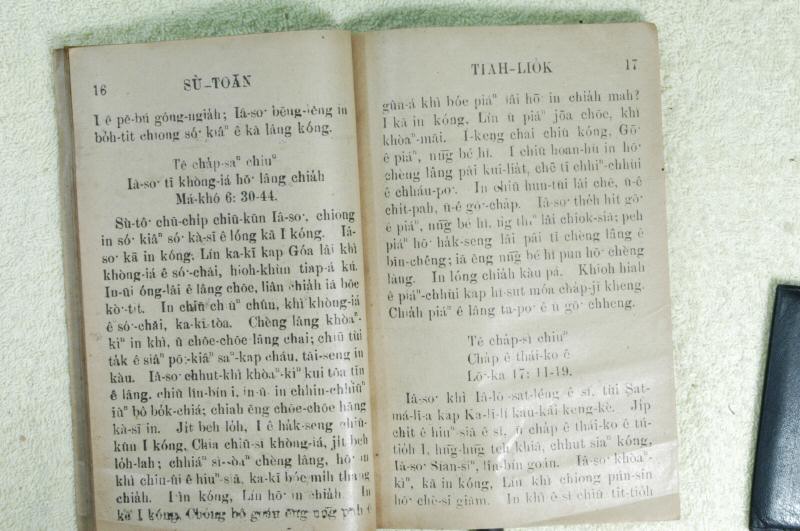 16 SÙ-TOĀN
I ê pē-bú góng-ngia̍h; Iâ-so͘ bēng-lēng in
bo̍h-tit chiong só͘ kiâⁿ ê kā lâng kóng.
Tē cha̍p-saⁿ chiuⁿ
Iâ-so͘ tī khòng-iá hō͘ lâng chia̍h
Má-khó 6: 30-44.
Sù-tô͘ chū-chi̍p chiū-kūn Iâ-so͘, chiong
in só͘ kiâⁿ só͘ kà-sī ê lóng kā I kóng. Iâ-
so͘ kā in kóng, Lín ka-kī kap Góa lâi khì
khòng-iá ê só͘-chāi, hioh-khùn tia̍p-á kú.
In-ūi óng-lâi ê lâng chōe, liân chia̍h iā bōe
kò͘-tit. In chiū chūⁿ chûn, khì khòng-iá
ê só͘-chāi, ka-kī tòa. Chèng lâng khòaⁿ-
kìⁿ in khì, ū chōe-chōe lâng chai; chiū tùi
ta̍k ê siâⁿ pō͘-kiâⁿ saⁿ-kap cháu, tāi-seng in
kàu. Iâ-so͘ chhut-khì khòaⁿ-kìⁿ kui tōa tīn
ê lâng, chiū lîn-bín i, in-ūi in chhin-chhiūⁿ
iûⁿ bô bo̍k-chiá; chiah ēng chōe-chōe hāng
kà-sī in. Ji̍t beh lo̍h, I ê ha̍k-seng chiū-
kūn I kóng, Chia chiū-sī khòng-iá, ji̍t beh
lo̍h-lah; chhiáⁿ sì-sòaⁿ chèng lâng, hō͘ in
khì chiu-ûi ê hiuⁿ-siā, ka-kī bóe mi̍h thang
chia̍h. I ìn kóng, Lín hō͘ in chia̍h. In
TIAH-LIO̍K 17
gûn-á khì bóe piáⁿ lâi hō͘ in chia̍h mah?
I kā in kóng, Lín ū piáⁿ jōa chōe, khì
khòaⁿ-māi. I-keng chai chiū kóng, Gō͘
ê piáⁿ, nn̄g bé hî. I chiū hoan-hù in hō͘
chèng lâng pâi kui-lia̍t, chē tī chhiⁿ-chhùi
ê chháu-po͘. In chiū hun-tūi lâi chē, ū-ê
chi̍t-pah, ū-ê gō͘-cha̍p. Iâ-so͘ the̍h hit gō͘
ê piáⁿ, nn̄g bé hî, n̂g thiⁿ lâi chiok-siā; peh
piáⁿ hō͘ ha̍k-seng lâi pâi tī chèng lâng ê
bīn-chêng; iā ēng nn̄g bé hî pun hō͘ chèng
lâng. In lóng chia̍h kàu pá. Khioh hiah
ê piáⁿ-chhùi kap hî-sut móa cha̍p-jī kheng.
Chia̍h piáⁿ ê lâng ta-po͘ ê ū gō͘ chheng.
Tē cha̍p-sì chiuⁿ
Cha̍p ê thái-ko ê
Lō͘-ka 17: 11-19.
Iâ-so͘ khì Iâ-lō͘-sat-léng ê sî, tùi Sat-
má-lī-a kap Ka-lī-lī kau-kài keng-kè. Ji̍p
chi̍t ê hiuⁿ-siā ê sî, ū cha̍p ê thái-ko ê tú-
tio̍h I, hn̄g-hn̄g teh khiā, chhut siaⁿ kóng,
Iâ-so͘ Sian-siⁿ, lîn-bín goán. Iâ-so͘ khòaⁿ-
kìⁿ, kā in kóng, Lín khì chiong pún-sin
hō͘ chè-si giām. In khì ê sî chiū tit-tio̍h